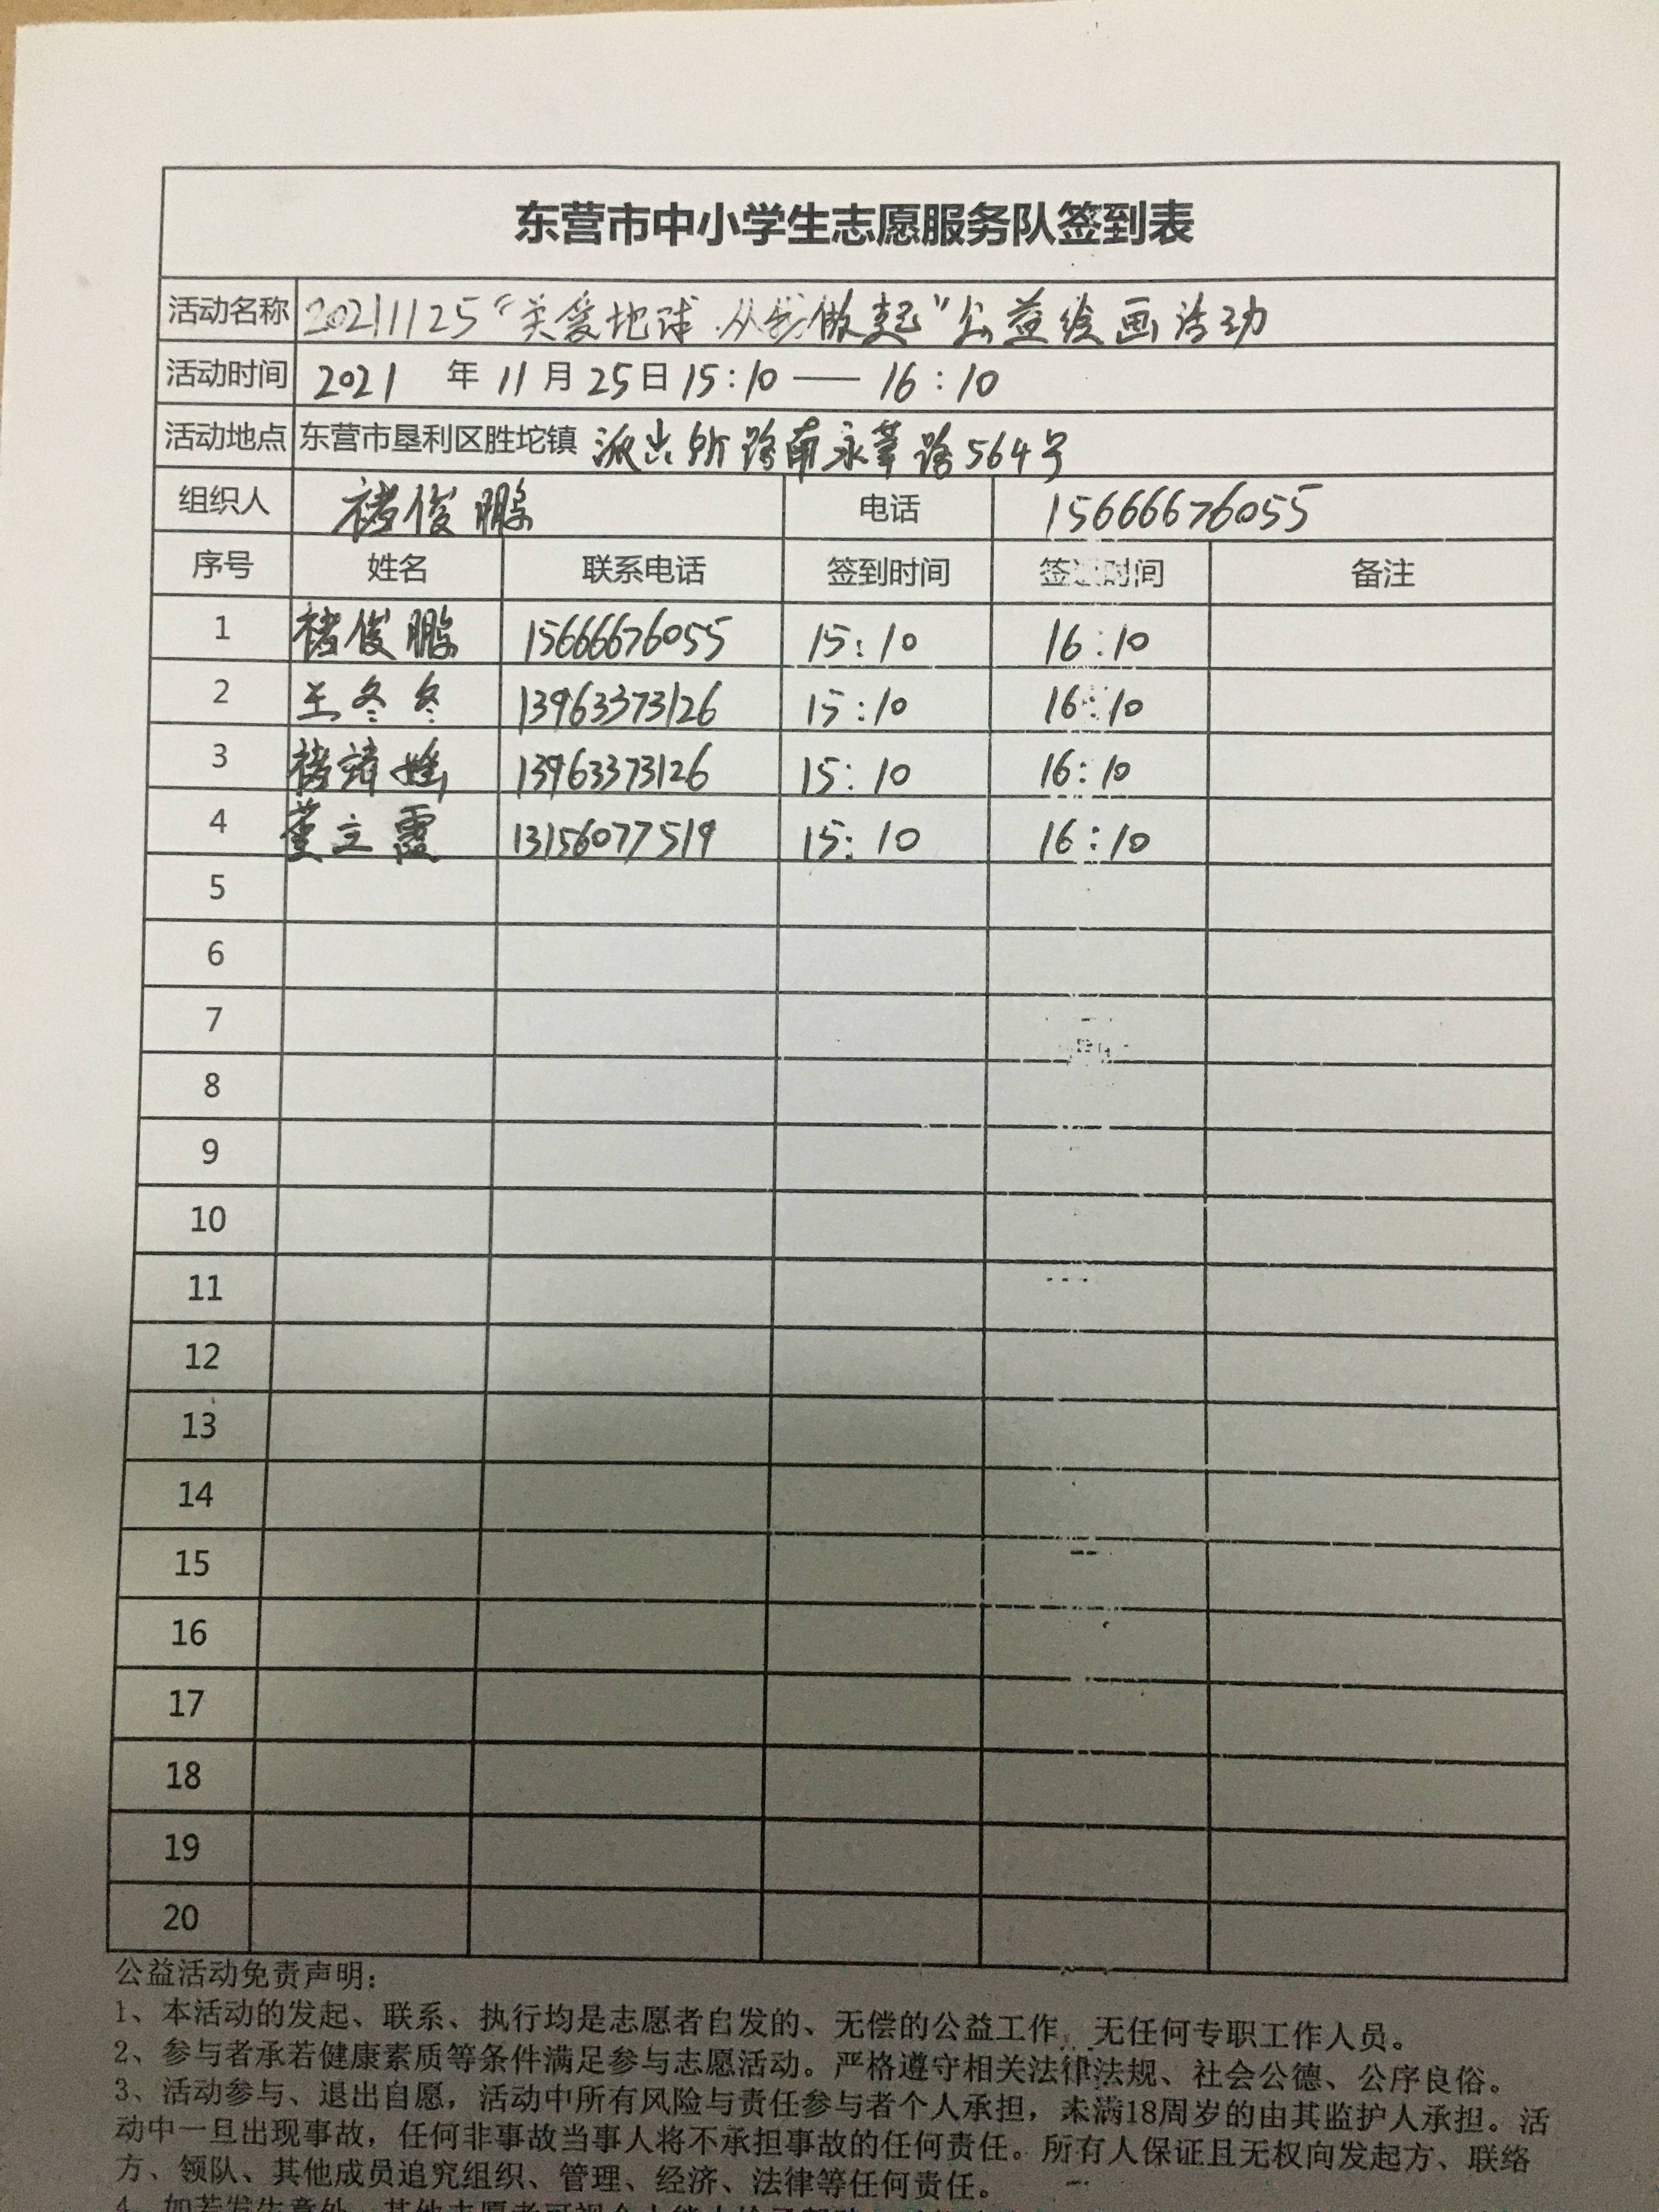 东营市中小学生志愿服务队签到表
活动名称 20211125“关爱地球 从我做起”公益绘画活动
活动时间 2021 年 11 月 25 日 15:10 — 16:10
活动地点 东营市垦利区胜坨镇 派出所路南永莘路564号
组织人 褚俊鹏 电话 15666676055
序号 姓名 联系电话 签到时间 签退时间 备注
1 褚俊鹏 15666676055 15:10 16:10
2 王冬冬 13963373126 15:10 16:10
3 褚靖 13963373126 15:10 16:10
4 董立霞 13156077519 15:10 16:10
5
6
7
8
9
10
11
12
13
14
15
16
17
18
19
20
公益活动免责声明：
1、本活动的发起、联系、执行均是志愿者自发的、无偿的公益工作，无任何专职工作人员。
2、参与者承若健康素质等条件满足参与志愿活动。严格遵守相关法律法规、社会公德、公序良俗。
3、活动参与、退出自愿，活动中所有风险与责任参与者个人承担，未满18周岁的由其监护人承担。活
动中一旦出现事故，任何非事故当事人将不承担事故的任何责任。所有人保证且无权向发起方、联络
方、领队、其他成员追究组织、管理、经济、法律等任何责任。